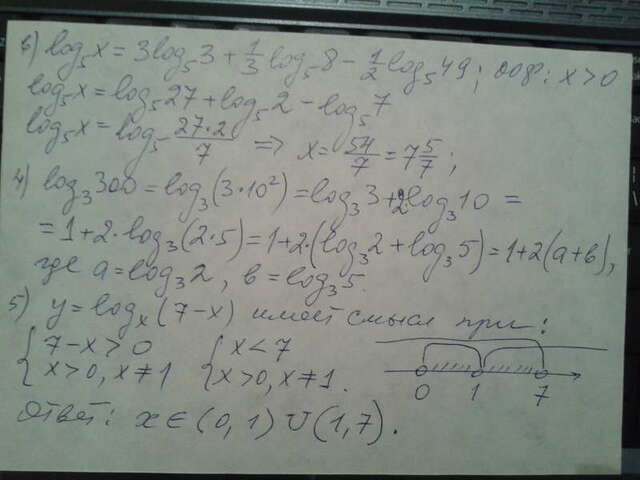 в) log₅x = 3log₅3 + 1/3 log₅8 − 1/2 log₅49; ООФ: x>0
log₅x = log₅27 + log₅2 − log₅7
log₅x = log₅ 27·2/7 => x = 54/7 = 7 5/7;
4) log₃300 = log₃(3·10²) = log₃3 + 2log₃10 =
= 1+2·log₃(2·5) = 1+2·(log₃2 + log₃5) = 1+2(a+b),
где a = log₃2, b = log₃5.
5) y = logₓ(7−x) имеет смысл при:
{ 7−x>0 { x<7
{ x>0, x≠1 { x>0, x≠1.
0 1 7
Ответ: x∈(0,1)∪(1,7).